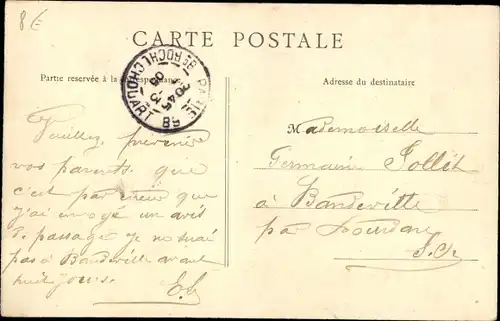 8 €
CARTE POSTALE
Partie reservée à la correspondance
Adresse du destinataire
PARIS 89 Bd ROCHECHOUART
Veuillez prevenir
vos parents que
c'est par erreur que
j'ai envoyé un avis
de passage je ne irai
pas à Bandeville avant
huit jours.
Mademoiselle
Germaine Jollit
à Bandeville
par Dourdan
S. et O.